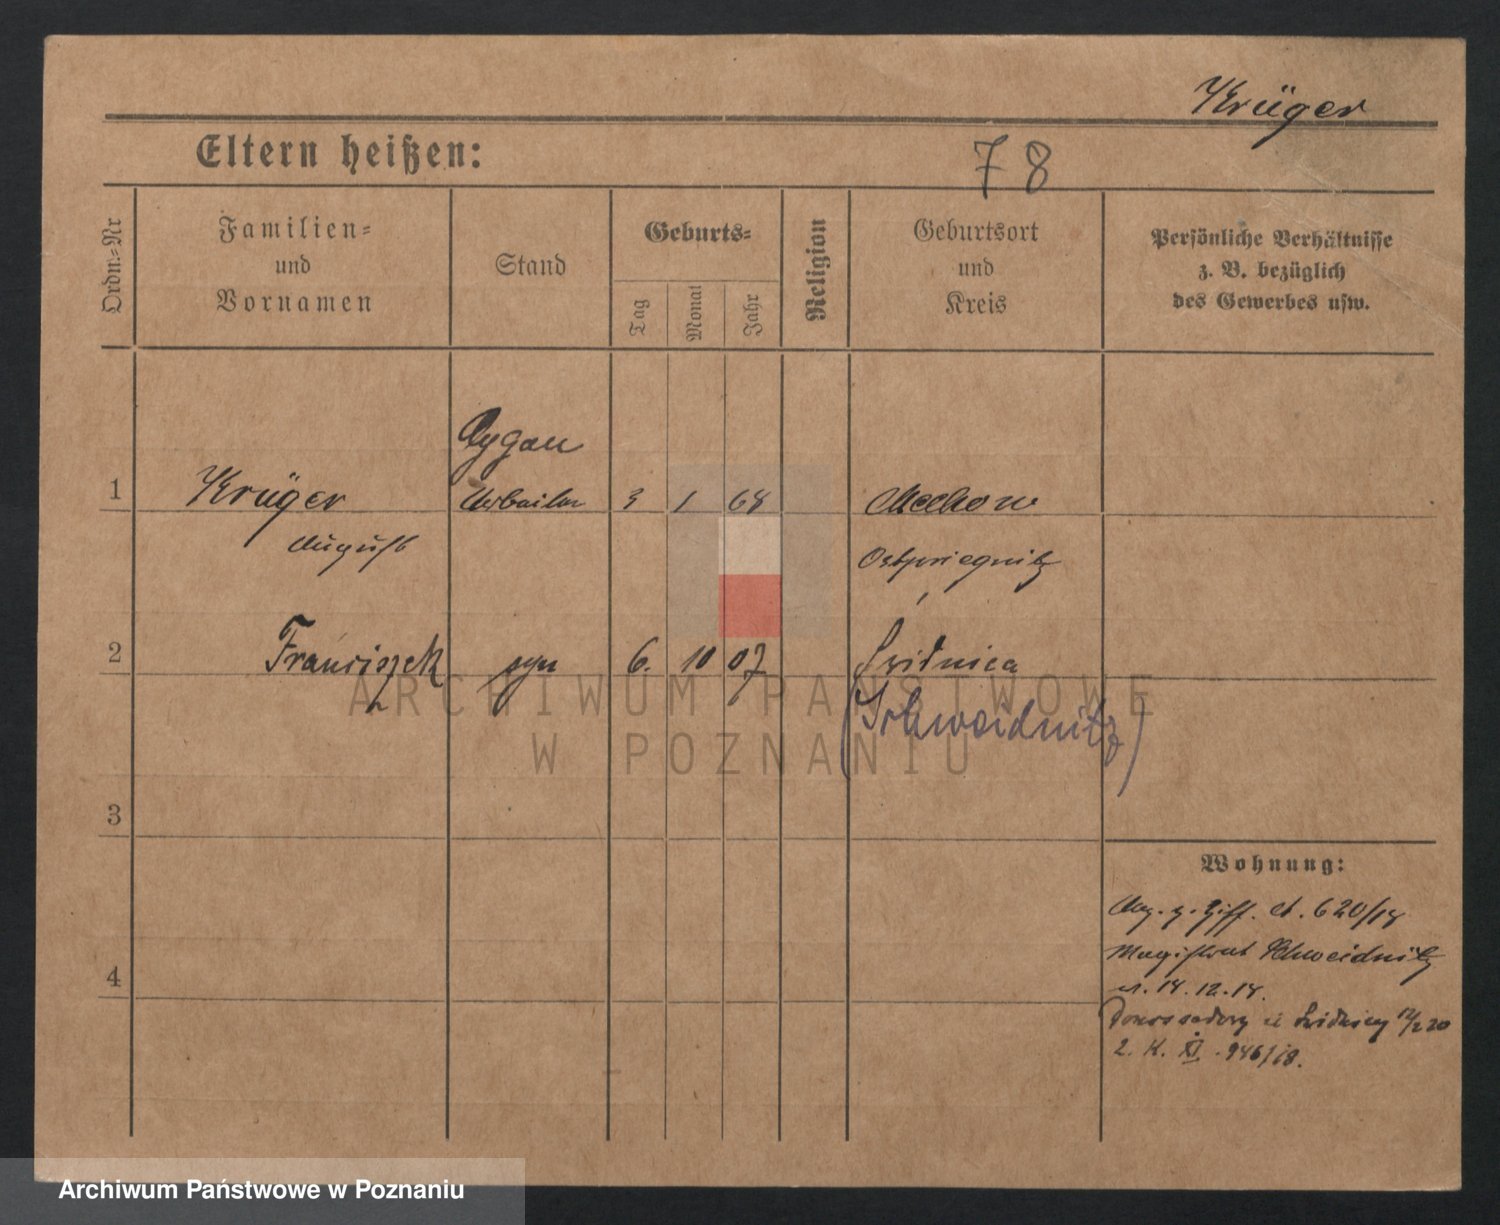 Krüger
Eltern heißen:
78
Ordn.-Nr
Familien-
und
Vornamen
Stand
Geburts-
Tag
Monat
Jahr
Religion
Geburtsort
und
Kreis
Persönliche Verhältnisse
z. B. bezüglich
des Gewerbes usw.
1
Krüger
August
3 1 68
Ostpriegnitz
2 Franciszek syn 6. 10 07 Świdnica
(Schweidnitz)
3
4
Wohnung:
620/18
Magistrat Schweidnitz
14.12.18.
12/2 20
2. K. XI. 946/18.
ARCHIWUM PAŃSTWOWE
W POZNANIU
Archiwum Państwowe w Poznaniu